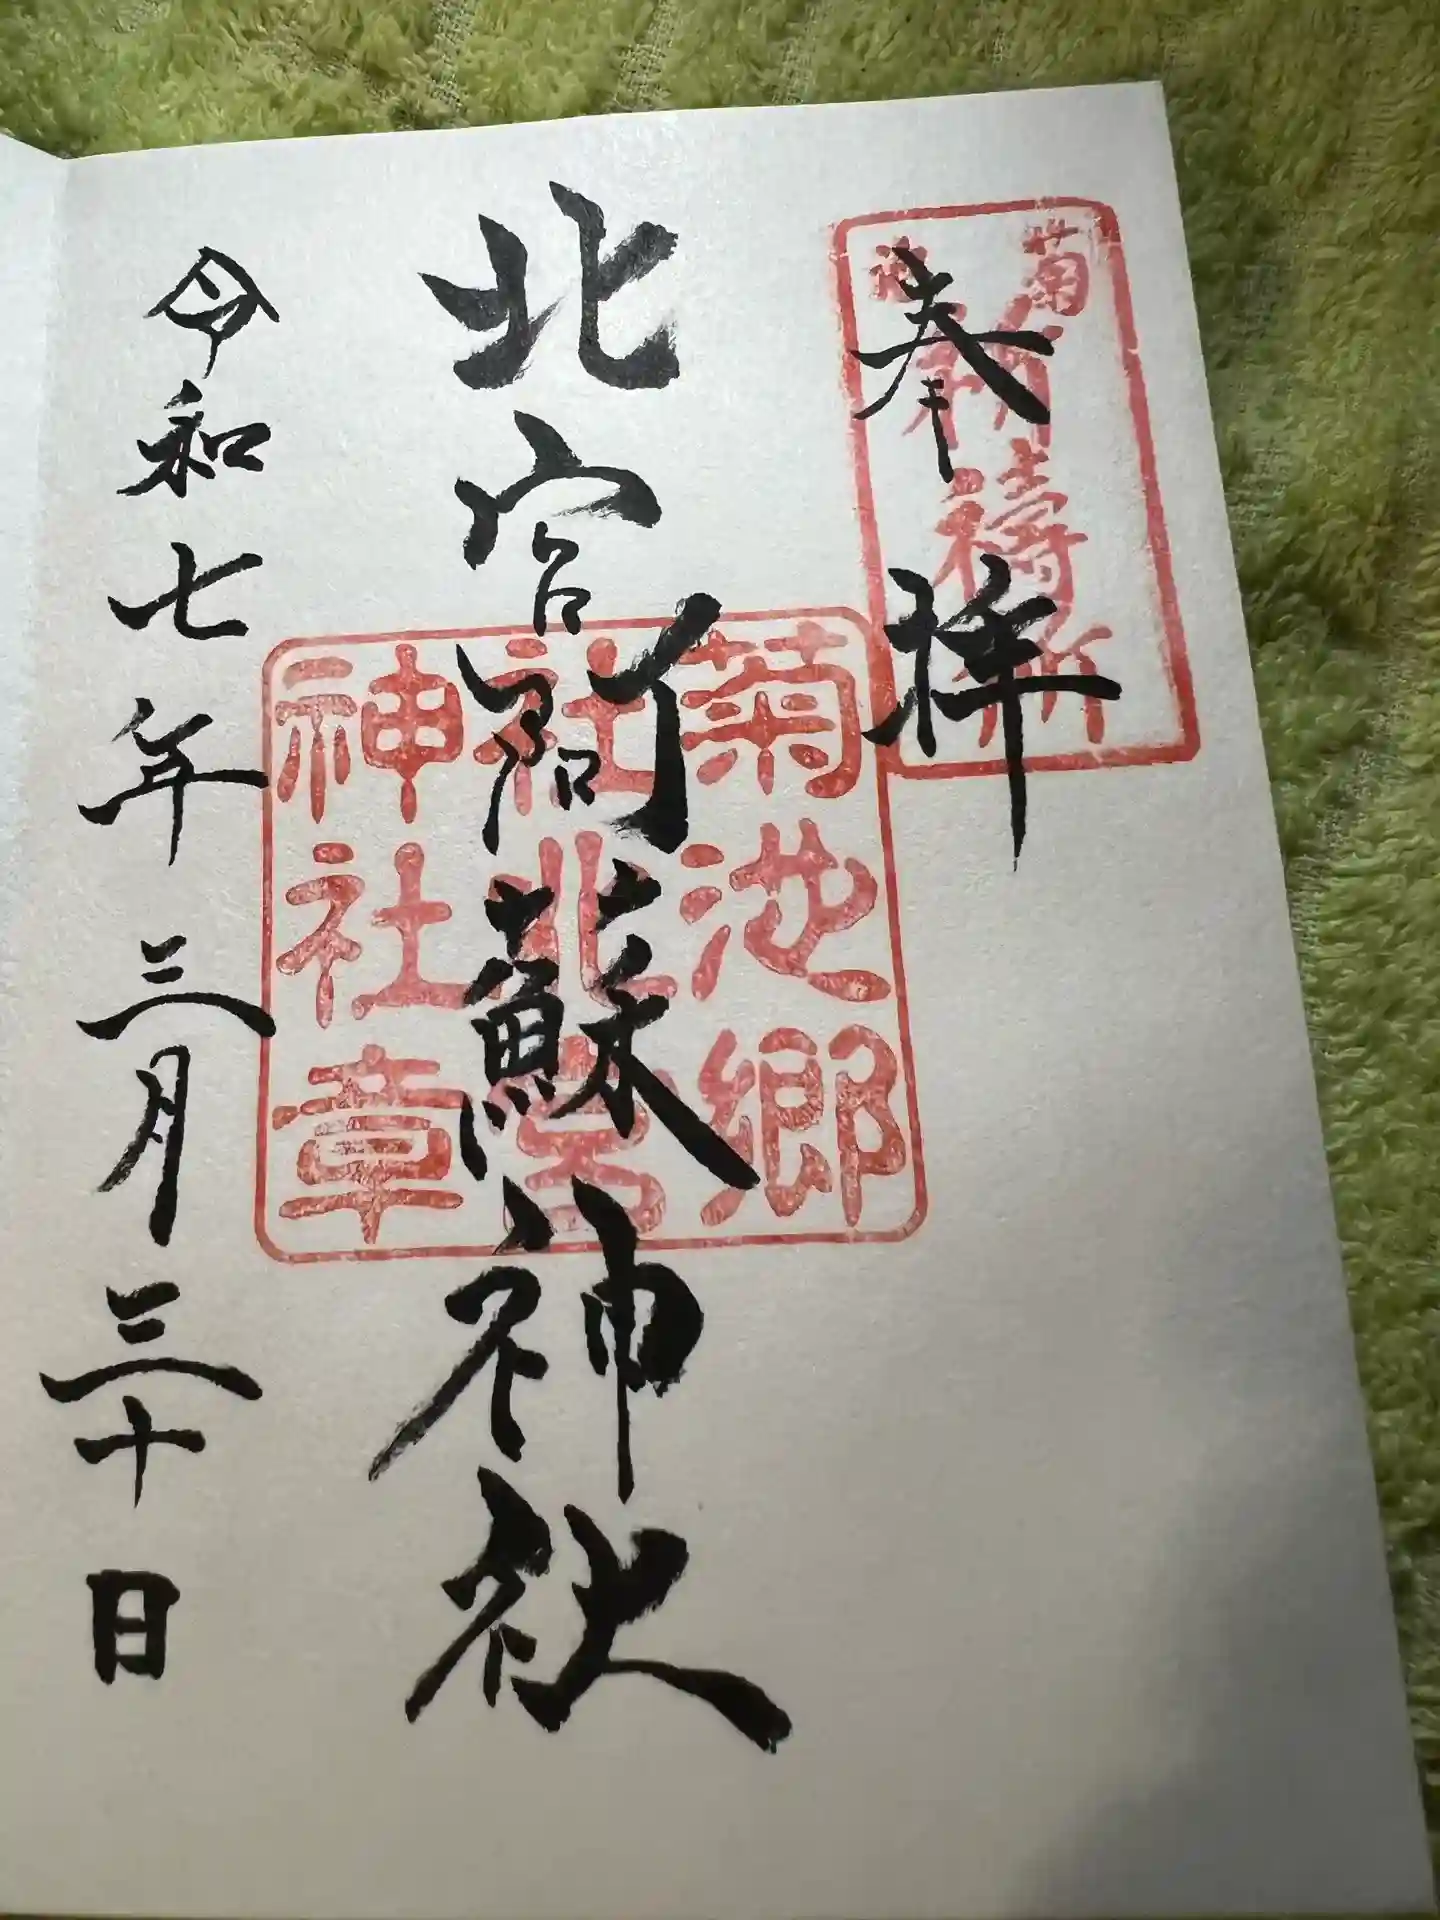 奉拝
菊池
祈祷所
北宮阿蘇神社
菊池郷
社北宮
神社章
令和七年三月三十日